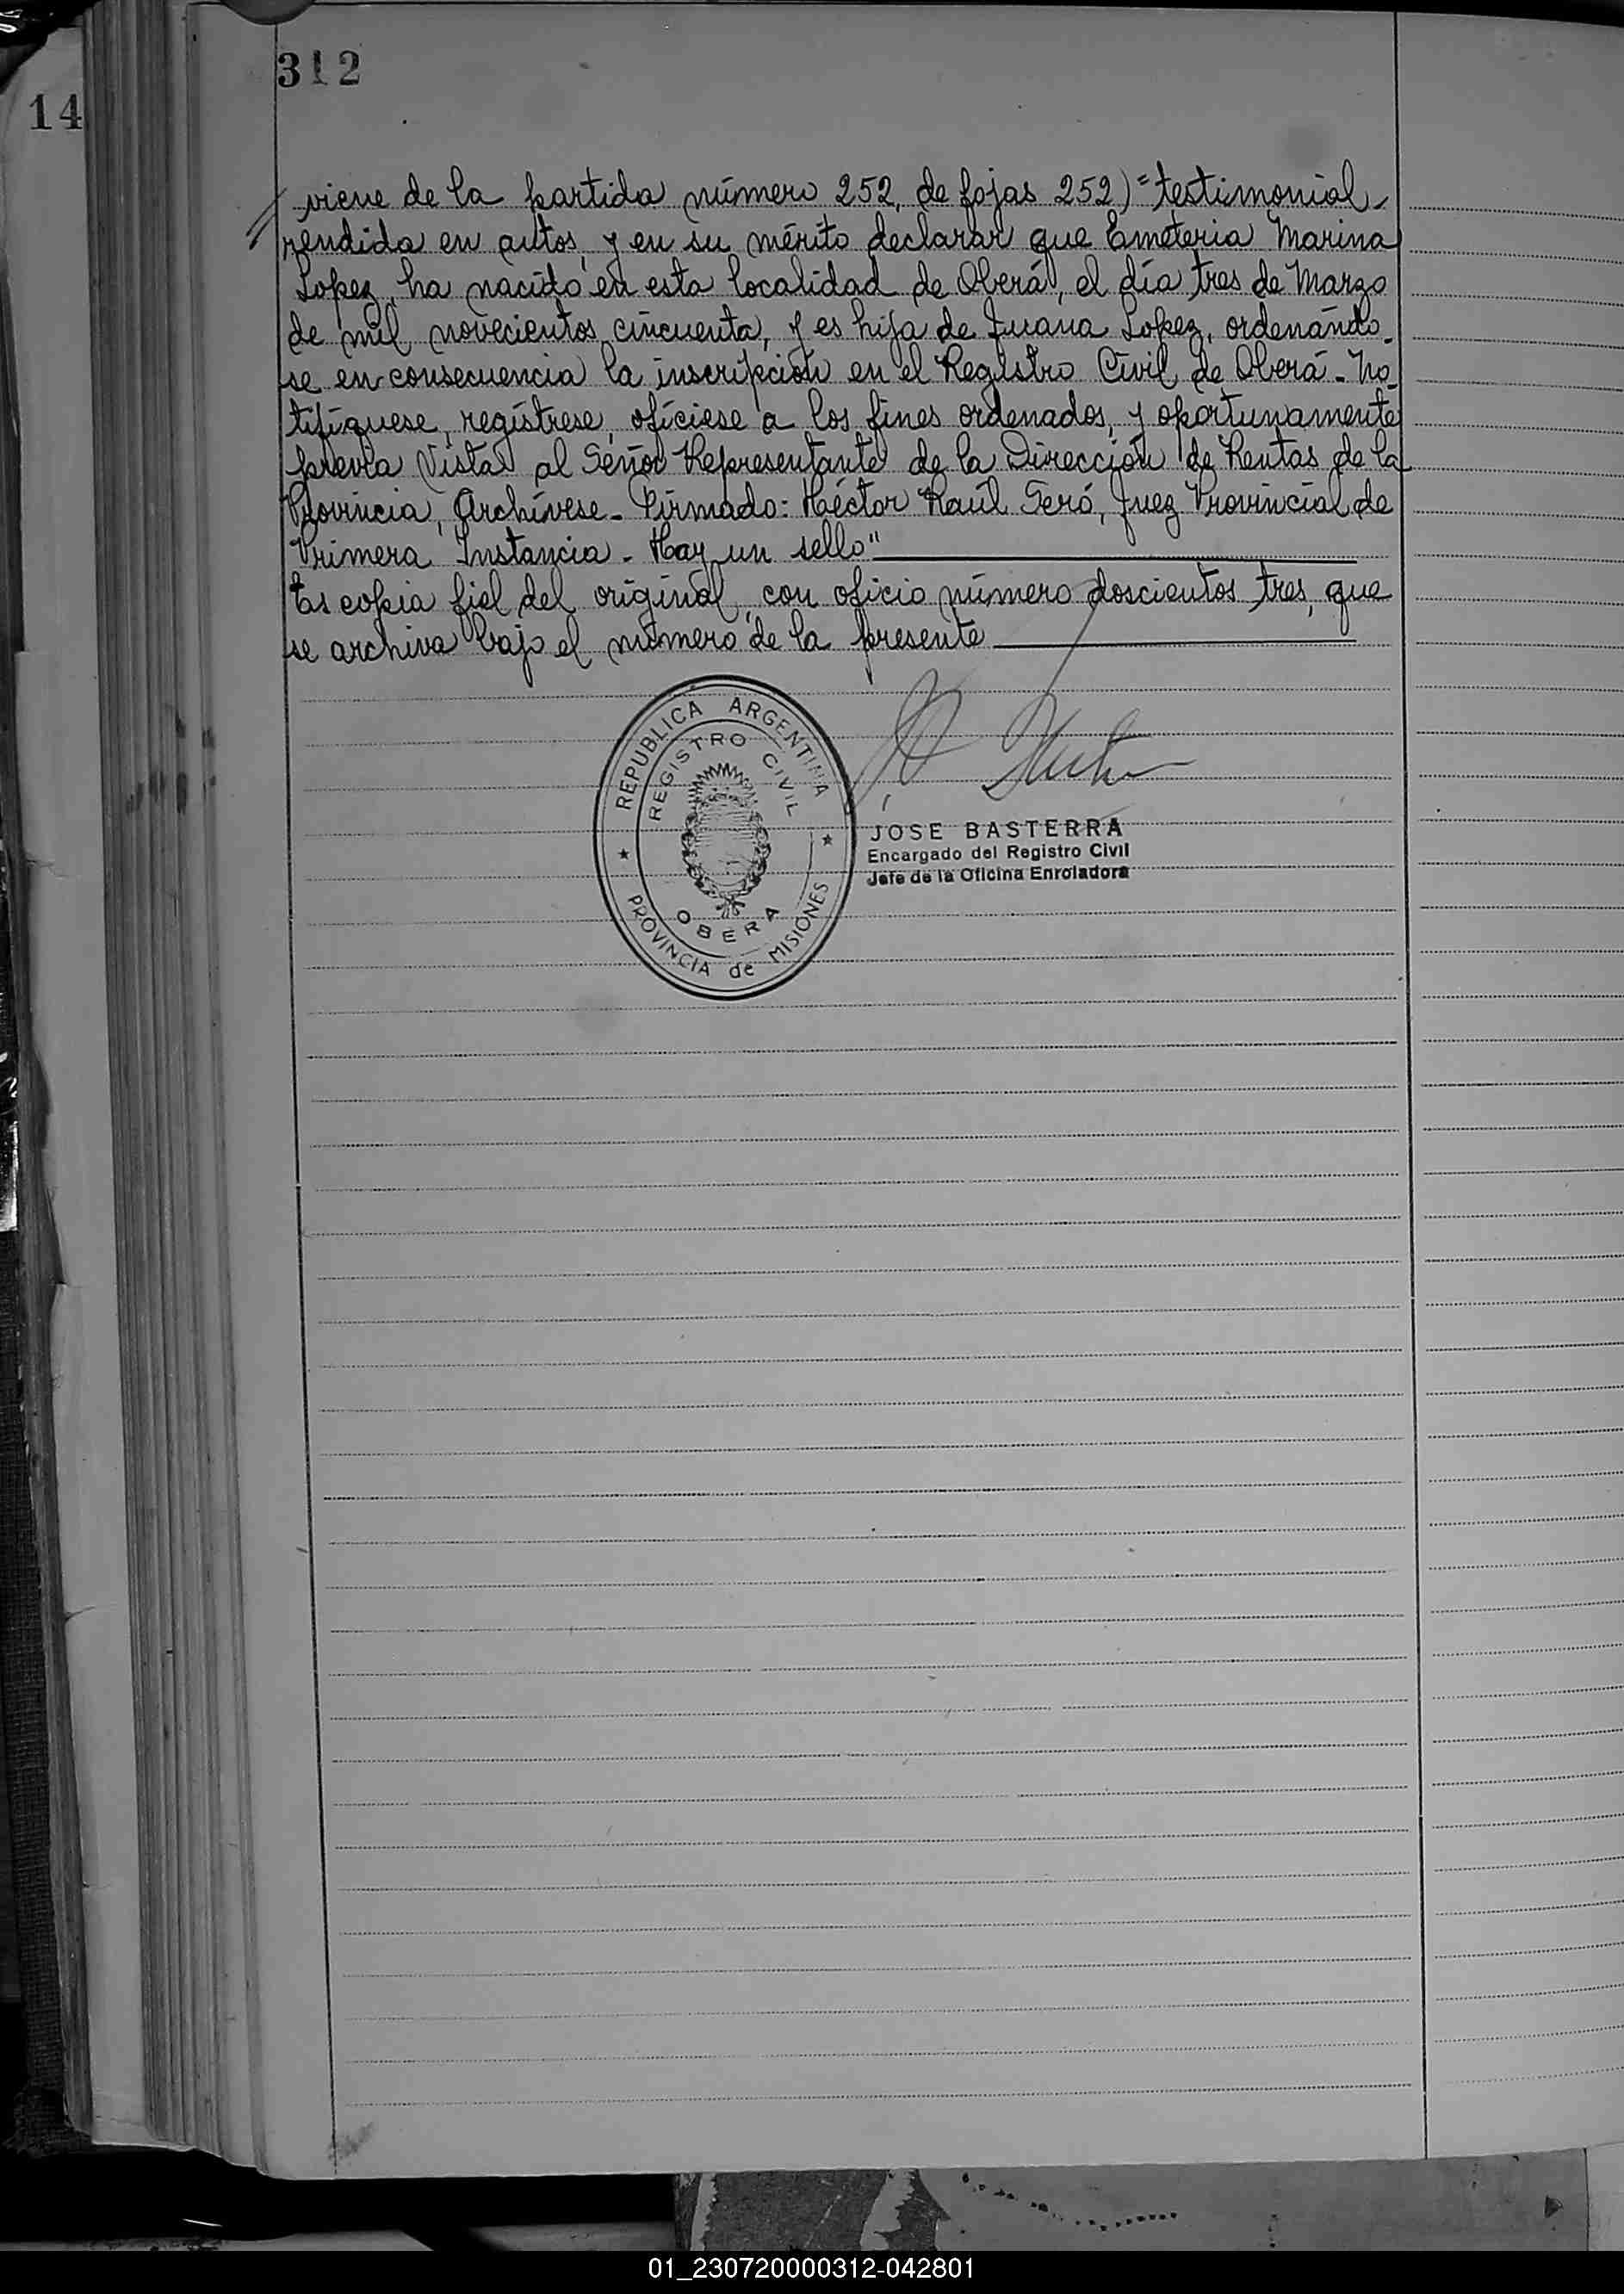 312
14
viene de la partida número 252, de fojas 252) = testimonial
rendida en autos, y en su mérito declarar que Emeteria Marina
Lopez, ha nacido en esta localidad de Oberá, el día tres de Marzo
de mil novecientos cincuenta, y es hija de Juana Lopez, ordenándo-
se en consecuencia la inscripción en el Registro Civil de Oberá - No-
tifíquese, regístrese, ofíciese a los fines ordenados, y oportunamente
previa Vista al Señor Representante de la Dirección de Rentas de la
Provincia, Archívese - Firmado: Héctor Raúl Seró, Juez Provincial de
Primera Instancia - Hay un sello"
Es copia fiel del original, con oficio número doscientos tres, que
se archiva bajo el número de la presente
REPUBLICA ARGENTINA
REGISTRO CIVIL
OBERA
PROVINCIA de MISIONES
JOSE BASTERRA
Encargado del Registro Civil
Jefe de la Oficina Enroladora
01_230720000312-042801